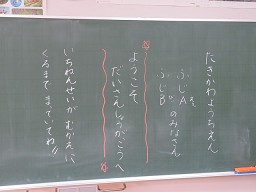 たきかわようちえん
ふじA そ
ふじB" のみなさん
ようこそ
だいさんしょうがっこうへ
いちねんせいが むかえに
くるまで まっていてね!!